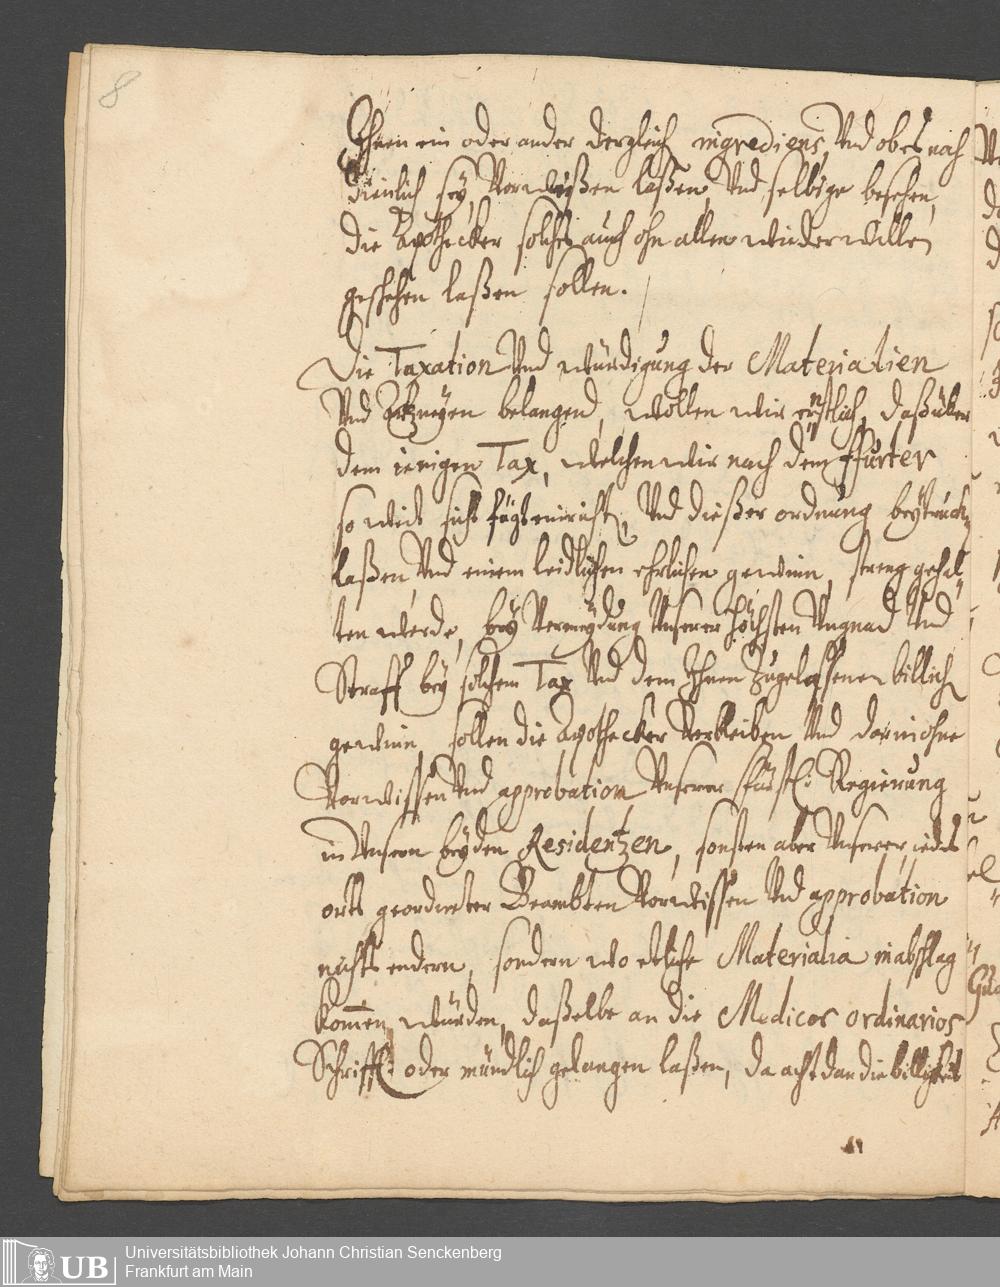 8
Ihnen ein oder ander dergleich ingrediens, Vnd ob es noch
dienlich sey, Vorweißen laßen, Vnd selbige besehen,
die Apothecker solches auch ohn allen wiederwillen
geschehen laßen sollen.
Die Taxation Vnd würdigung der Materialien
Vnd Artzneyen belangend, wollen wir ernstlich, daß über
dem ienigen Tax, welchen wir nach dem ffurter
so weit sichs fügt einricht, Vnd dießer ordnung beytruck
laßen, Vnd einem leidlichen ehrlichen gewinn, streng gehal
ten werde, bey Vermeydung Vnserer höchsten Vngnad Vnd
Straff bey solchem Tax Vnd dem Ihnen zugelassenen billich
gewinn, sollen die Apothecker Verbleiben Vnd darin ohne
Vorwissen Vnd approbation Vnserer fürstl: Regierung
in Vnsern beyden Residentzen, sonsten aber Vnserer, iedes
orts geordneter Beambten Vorwissen Vnd approbation
nichts endern, sondern wo etliche Materialia in abschlag
kom̄en würden, daßelbe an die Medicos ordinarios
Schrifftl: oder mündlich gelangen laßen, da alsdan die billigkeit
UB
Universitätsbibliothek Johann Christian Senckenberg
Frankfurt am Main